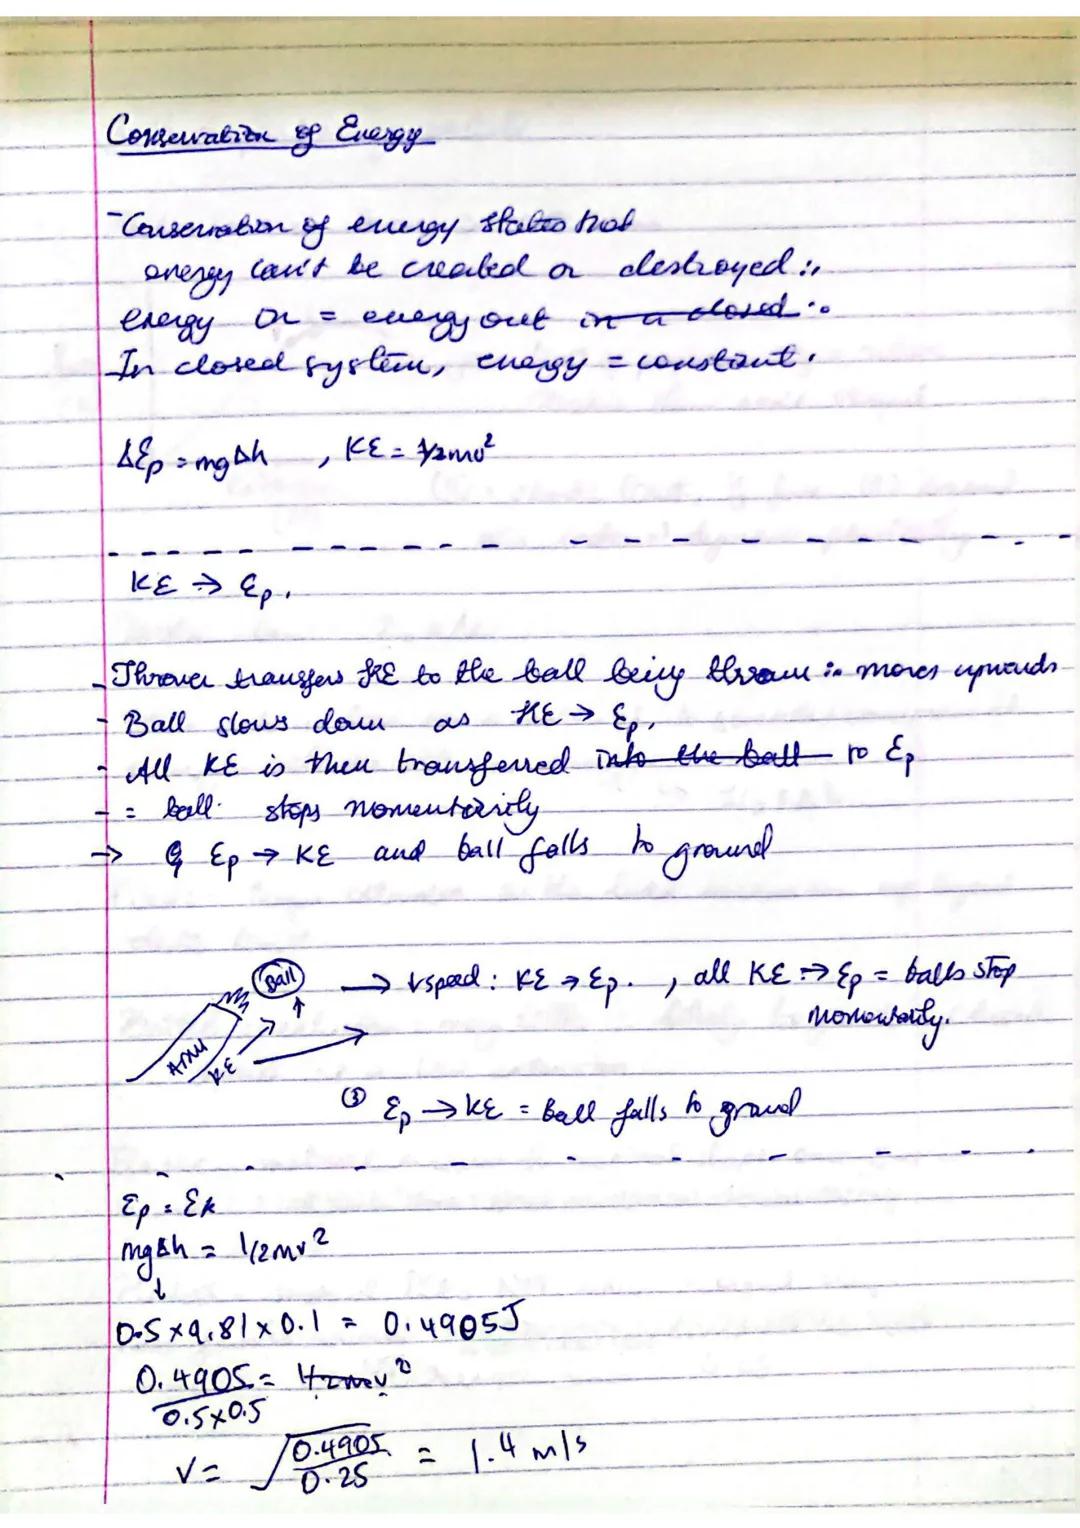 Conservation of Energy
- Conservation of energy states that
energy can't be created or destroyed ∴
energy in = energy out in a closed ∴
In closed system, energy = constant.
ΔEp = mgΔh , KE = 1/2mv²
KE → Ep.
- Thrower transfers KE to the ball being thrown ∴ moves upwards
- Ball slows down as KE → Ep.
- All KE is then transferred into the ball to Ep
- = ball stops momentarily
→ Ep → KE and ball falls to ground
Ball → ↓speed : KE → Ep. , all KE → Ep = balls stop
momentarily.
Arm
KE
③ Ep → KE = Ball falls to ground
Ep = Ek
mgΔh = 1/2mv²
↓
0.5 × 9.81 × 0.1 = 0.4905J
0.4905 = 1/2mv²
0.5×0.5
v = √0.4905 = 1.4 m/s
0.25